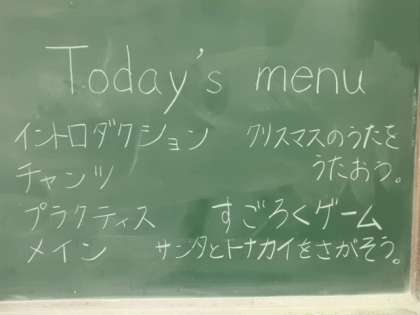 Today's menu
イントロダクション クリスマスのうたを
うたおう。
チャンツ
プラクティス すごろくゲーム
メイン サンタとトナカイをさがそう。